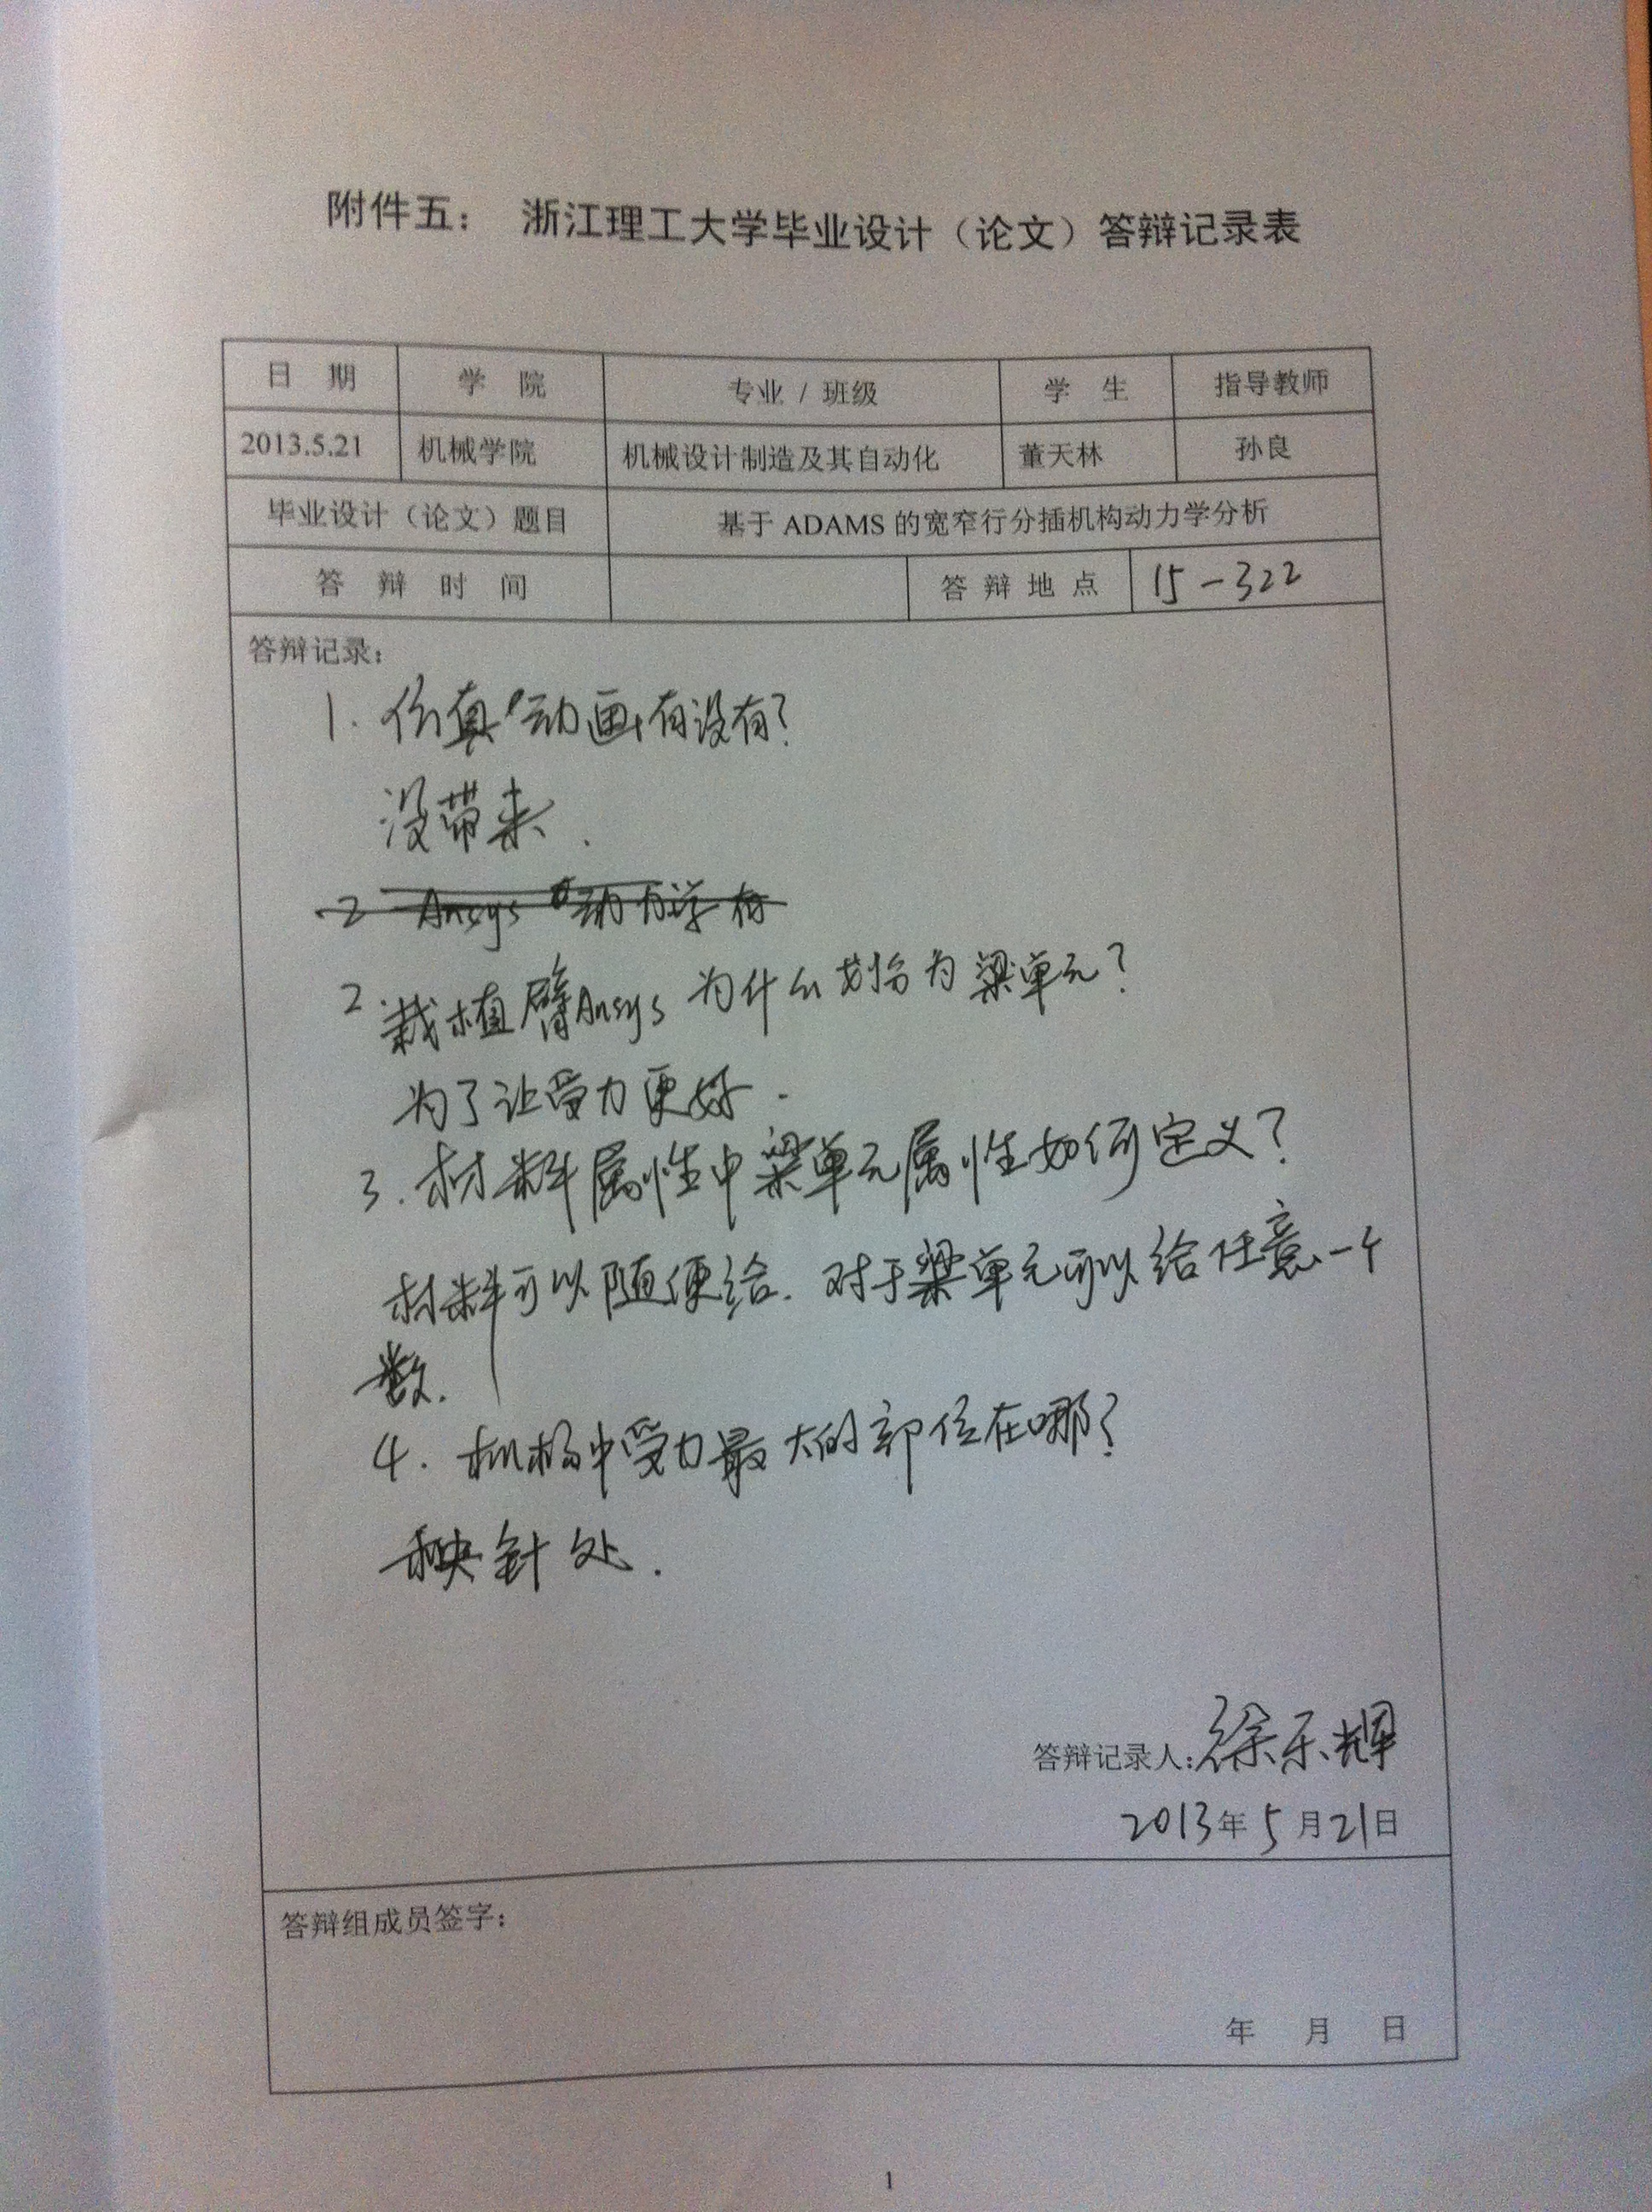 附件五： 浙江理工大学毕业设计（论文）答辩记录表
日 期 学 院 专业 / 班级 学 生 指导教师
2013.5.21 机械学院 机械设计制造及其自动化 董天林 孙良
毕业设计（论文）题目 基于 ADAMS 的宽窄行分插机构动力学分析
答 辩 时 间 答 辩 地 点 15-322
答辩记录：
1. 仿真动画有没有？
没带来.
2 Ansys 动力学有
2 栽植臂Ansys 为什么划分为梁单元？
为了让受力更好.
3. 材料属性中梁单元属性如何定义？
材料可以随便给. 对于梁单元可以给任意一个
数.
4. 机构中受力最大的部位在哪？
秧针处.
答辩记录人：徐乐辉
2013年5月21日
答辩组成员签字：
年 月 日
1